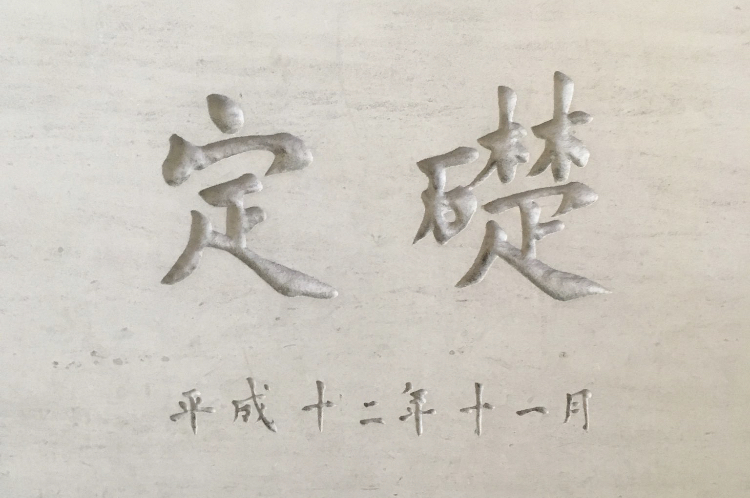 定礎
平成十二年十一月